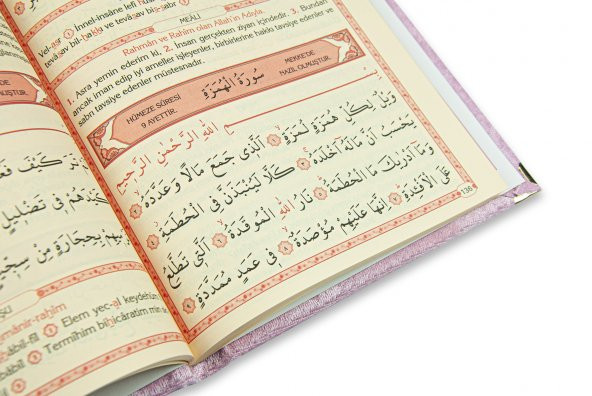 Vel-asr ① İnnel-insâne lefî
tevâsav bil-hakkı ve tevâsav bis-sabr
MEÂLİ
Rahmân ve Rahîm olan Allah'ın Adıyla.
1. Asra yemin ederim ki, 2. İnsan gerçekten ziyan içindedir. 3. Bundan
ancak iman edip iyi ameller işleyenler, birbirlerine hakkı tavsiye edenler ve
sabrı tavsiye edenler müstesnadır.
HÜMEZE SÛRESİ
9 AYETTİR.
سُورَةُ الْهُمَزَةِ
MEKKE'DE
NAZİL OLMUŞTUR.
بِسْمِ اللهِ الرَّحْمٰنِ الرَّحِيمِ
وَيْلٌ لِكُلِّ هُمَزَةٍ لُمَزَةٍ ١ اَلَّذِي جَمَعَ مَالًا وَعَدَّدَهُ ٢
يَحْسَبُ اَنَّ مَالَهُ اَخْلَدَهُ ٣ كَلَّا لَيُنْبَذَنَّ فِي الْحُطَمَةِ ٤
وَمَا اَدْرٰيكَ مَا الْحُطَمَةُ ٥ نَارُ اللهِ الْمُوقَدَةُ ٦ اَلَّتِي تَطَّلِعُ
عَلَى الْاَفْـِٔدَةِ ٧ اِنَّهَا عَلَيْهِمْ مُؤْصَدَةٌ ٨ فِي عَمَدٍ مُمَدَّدَةٍ ٩
136
'DE
MUŞTUR.
تَرَ كَيْفَ فَعَلَ
كَيْدَهُمْ فِي تَضْلِيلٍ
بِحِجَارَةٍ مِنْ سِجِّيلٍ
mânir-rahîm
① Elem yec-al keydehüm
Termîhim bihicâratim min